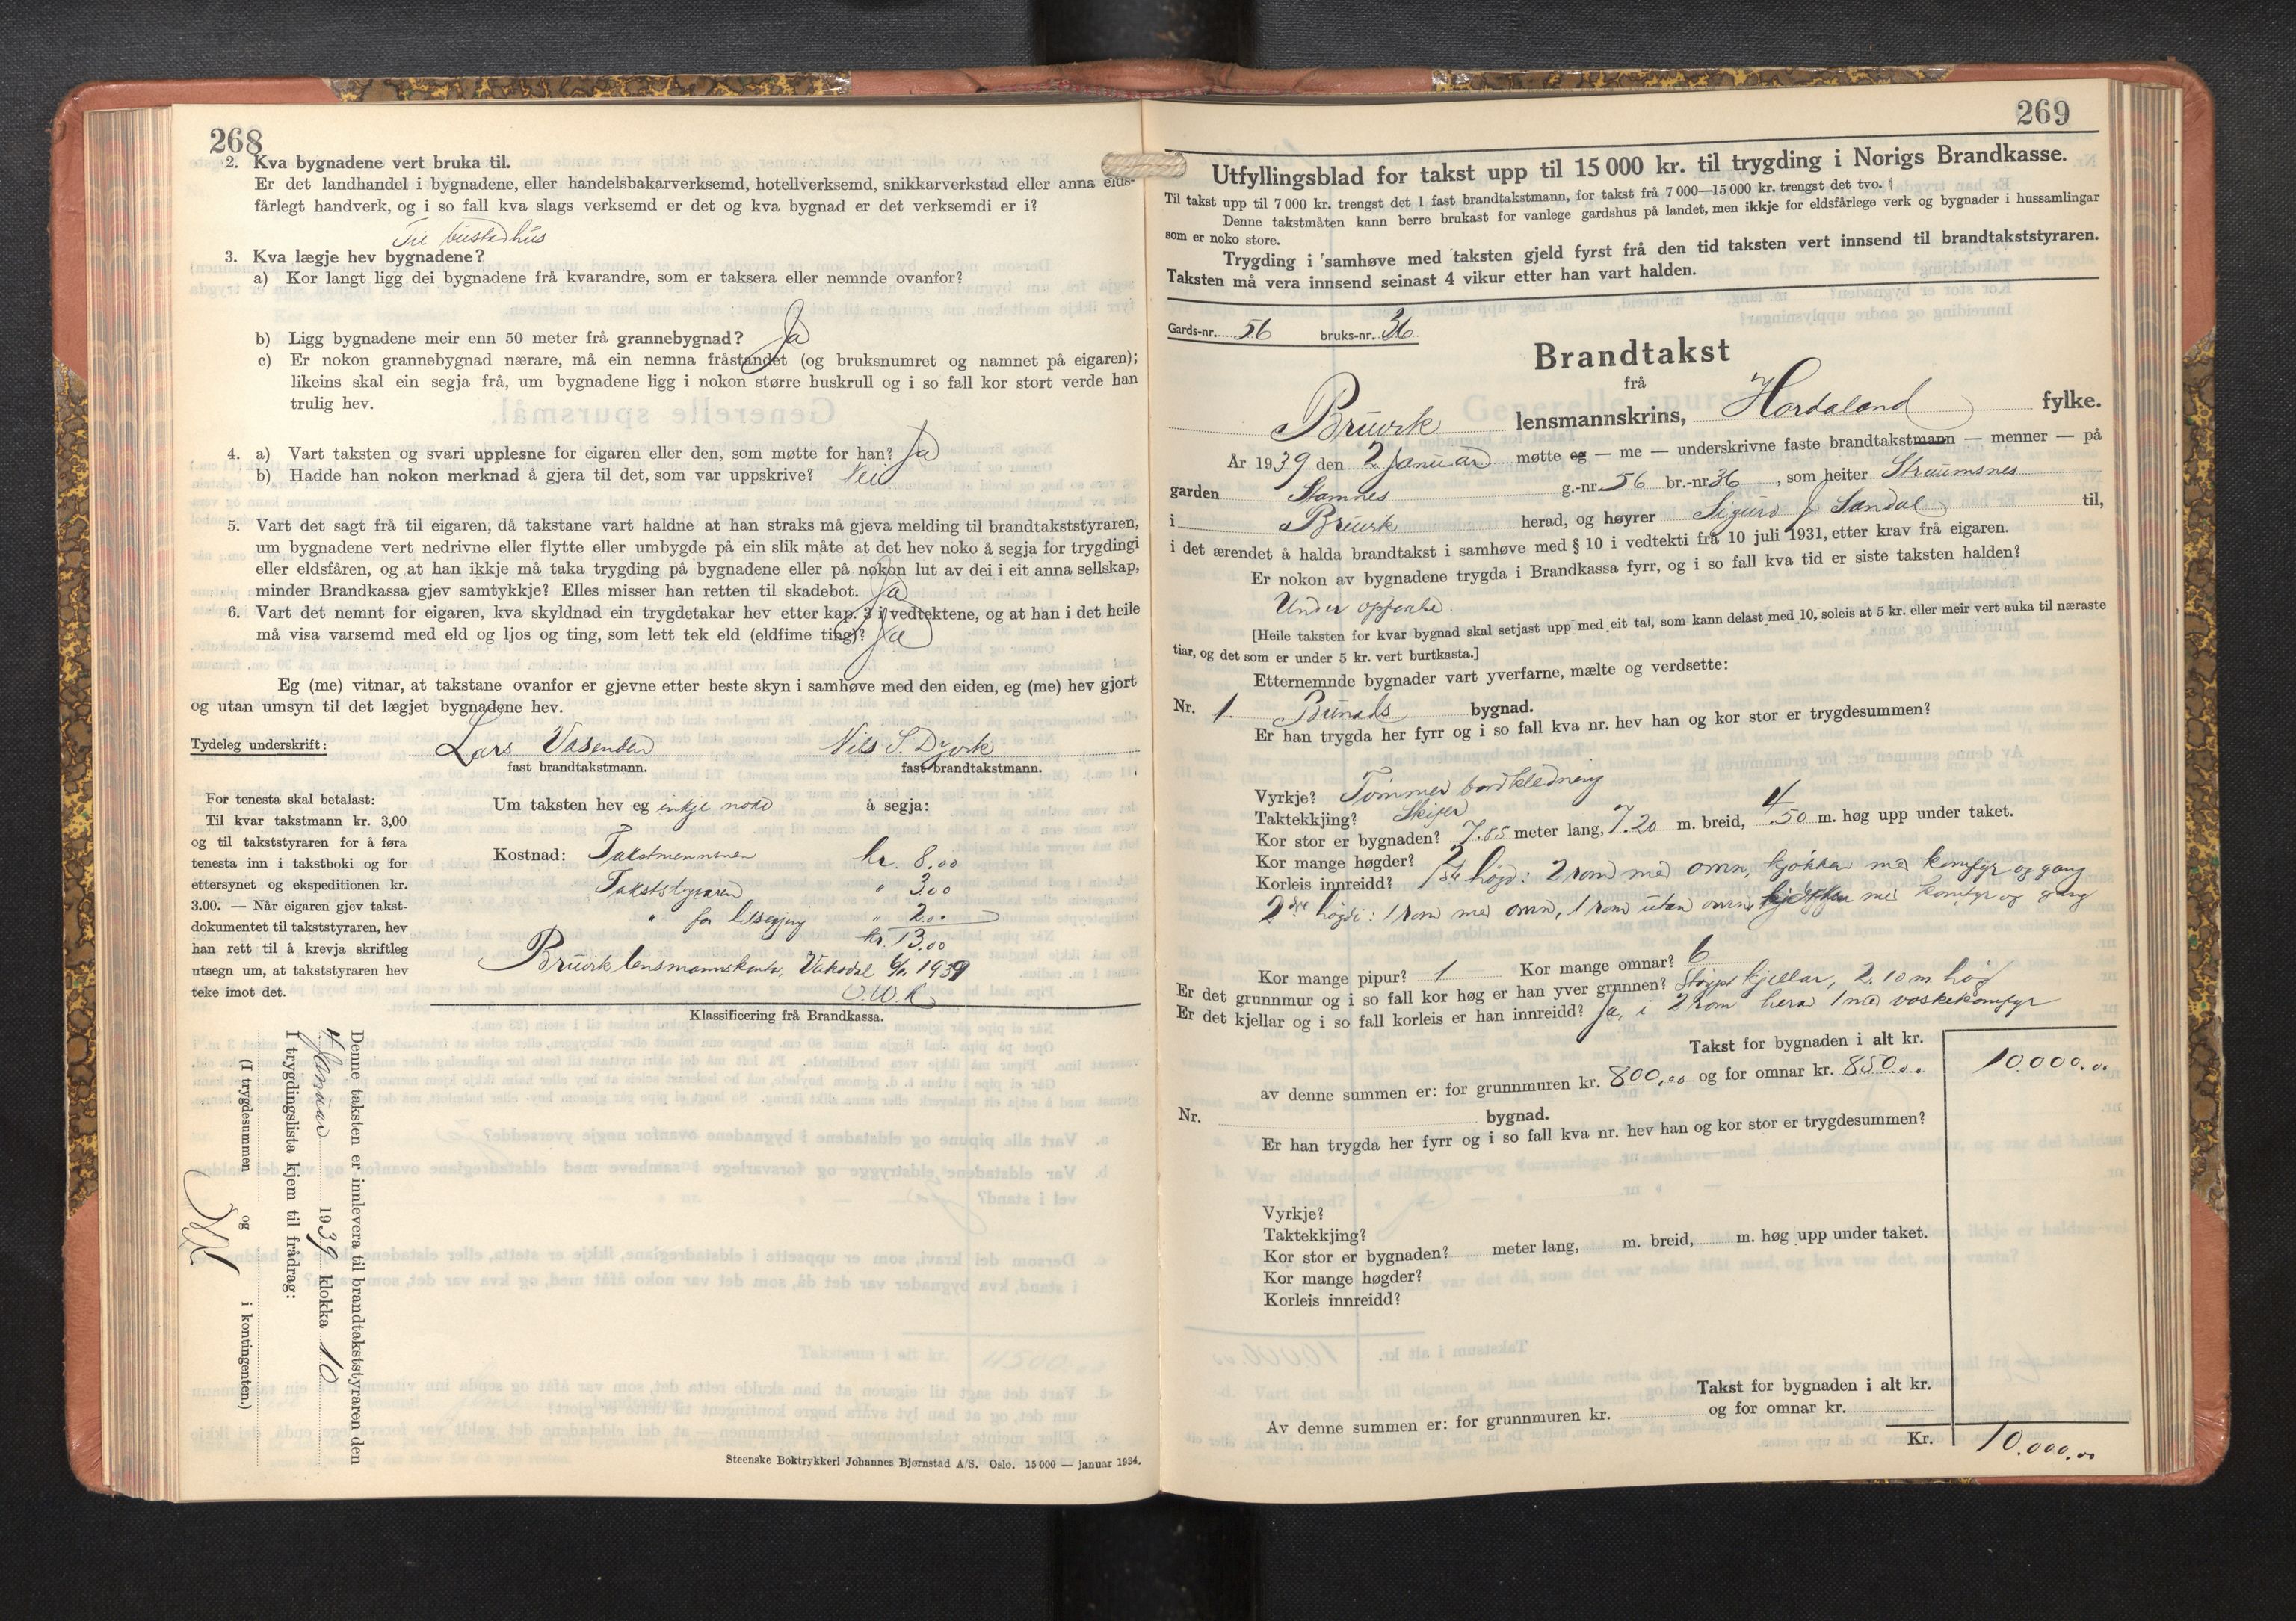 268
2. Kva bygnadene vert bruka til.
Er det landhandel i bygnadene, eller handelsbakarverksemd, hotellverksemd, snikkarverkstad eller anna elds-
fårlegt handverk, og i so fall kva slags verksemd er det og kva bygnad er det verksemdi er i?
Til bustadhus
3. Kva lægje hev bygnadene?
a) Kor langt ligg dei bygnadene frå kvarandre, som er taksera eller nemnde ovanfor?
b) Ligg bygnadene meir enn 50 meter frå grannebygnad? Ja
c) Er nokon grannebygnad nærare, må ein nemna fråstandet (og bruksnumret og namnet på eigaren);
likeins skal ein segja frå, um bygnadene ligg i nokon større huskrull og i so fall kor stort verde han
trulig hev.
4. a) Vart taksten og svari upplesne for eigaren eller den, som møtte for han? Ja
b) Hadde han nokon merknad å gjera til det, som var uppskrive? Nei
5. Vart det sagt frå til eigaren, då takstane vart haldne at han straks må gjeva melding til brandtakststyraren,
um bygnadene vert nedrivne eller flytte eller umbygde på ein slik måte at det hev noko å segja for trygdingi
eller eldsfåren, og at han ikkje må taka trygding på bygnadene eller på nokon lut av dei i eit anna sellskap,
minder Brandkassa gjev samtykkje? Elles misser han retten til skadebot. Ja
6. Vart det nemnt for eigaren, kva skyldnad ein trygdetakar hev etter kap. 3 i vedtektene, og at han i det heile
må visa varsemd med eld og ljos og ting, som lett tek eld (eldfime ting)? Ja
Eg (me) vitnar, at takstane ovanfor er gjevne etter beste skyn i samhøve med den eiden, eg (me) hev gjort
og utan umsyn til det lægjet bygnadene hev.
Tydeleg underskrift: Lars Vasenden Nils S. Dyvik
fast brandtakstmann. fast brandtakstmann.
For tenesta skal betalast:
Til kvar takstmann kr. 3,00
og til takststyraren for å føra
tenesta inn i takstboki og for
ettersynet og ekspeditionen kr.
3.00. — Når eigaren gjev takst-
dokumentet til takststyraren, hev
han rett til å krevja skriftleg
utsegn um, at takststyraren hev
teke imot det.
Um taksten hev eg inkje å segja:
Kostnad: Takstmennene kr. 8,00
Takststyraren " 3.00
" for tilsegjing " 2.00
kr. 13.00
Bruvik lensmannskontor, Vaksdal 4/1 1939
O.W.K
Klassificering frå Brandkassa.
Denne taksten er innlevera til brandtakststyraren den
4 Januar 1939 klokka 10
I trygdingslista kjem til frådrag:
(I trygdesummen og i kontingenten.)
Steenske Boktrykkeri Johannes Bjørnstad A/S. Oslo. 15 000 — januar 1934.
269
Utfyllingsblad for takst upp til 15 000 kr. til trygding i Norigs Brandkasse.
Til takst upp til 7 000 kr. trengst det 1 fast brandtakstmann, for takst frå 7 000—15 000 kr. trengst det tvo.
Denne takstmåten kann berre brukast for vanlege gardshus på landet, men ikkje for eldsfårlege verk og bygnader i hussamlingar
som er noko store.
Trygding i samhøve med taksten gjeld fyrst frå den tid taksten vert innsend til brandtakststyraren.
Taksten må vera innsend seinast 4 vikur etter han vart halden.
Gards-nr. 56 bruks-nr. 36
Brandtakst
frå
Bruvik lensmannskrins, Hordaland fylke.
År 1939 den 2 Januar møtte eg — me — underskrivne faste brandtakstmann — menner — på
garden Stamnes g.-nr. 56 br.-nr 36, som heiter Straumsnes
i Bruvik herad, og høyrer Sigurd J Sandal til,
i det ærendet å halda brandtakst i samhøve med § 10 i vedtekti frå 10 juli 1931, etter krav frå eigaren.
Er nokon av bygnadene trygda i Brandkassa fyrr, og i so fall kva tid er siste taksten halden?
Under
[Heile taksten for kvar bygnad skal setjast upp med eit tal, som kann delast med 10, soleis at 5 kr. eller meir vert auka til næraste
tiar, og det som er under 5 kr. vert burtkasta.]
Etternemnde bygnader vart yverfarne, mælte og verdsette:
Nr. 1. Bunads bygnad.
Er han trygda her fyrr og i so fall kva nr. hev han og kor stor er trygdesummen?
Vyrkje? Tømmer bordkledning
Taktekkjing? Skifer
Kor stor er bygnaden? 7.85 meter lang, 7.20 m. breid, 4.50 m. høg upp under taket.
Kor mange høgder? 2
Korleis innreidd? 1ste høgd: 2 rom med omn, kjøkken med komfyr og gang
2dre høgdi: 1 rom med omn, 1 rom utan omn, kjøkken med komfyr og gang
Kor mange pipur? 1 Kor mange omnar? 6
Er det grunnmur og i so fall kor høg er han yver grunnen? Støypt kjellar, 2.10 m. høg
Er det kjellar og i so fall korleis er han innreidd? Ja, i 2 rom herav 1 med vaskekomfyr
Takst for bygnaden i alt kr. 10.000.00
av denne summen er: for grunnmuren kr. 800,00 og for omnar kr. 850.00
Nr. bygnad.
Er han trygda her fyrr og i so fall kva nr. hev han og kor stor er trygdesummen?
Vyrkje?
Taktekkjing?
Kor stor er bygnaden? meter lang, m. breid, m. høg upp under taket.
Kor mange høgder?
Korleis innreidd?
Takst for bygnaden i alt kr.
Av denne summen er: for grunnmuren kr. og for omnar kr.
Kr. 10.000,00